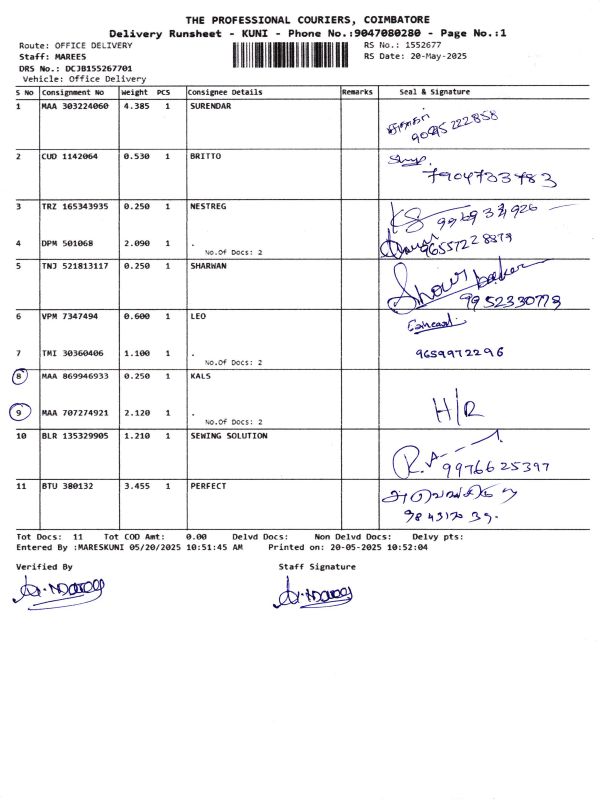 THE PROFESSIONAL COURIERS, COIMBATORE
Delivery Runsheet - KUNI - Phone No.:9047080280 - Page No.:1
Route: OFFICE DELIVERY RS No.: 1552677
Staff: MAREES RS Date: 20-May-2025
DRS No.: DCJB155267701
Vehicle: Office Delivery
S No Consignment No Weight PCS Consignee Details Remarks Seal & Signature
1 MAA 303224060 4.385 1 SURENDAR
2 CUD 1142064 0.530 1 BRITTO
7904733483
3 TRZ 165343935 0.250 1 NESTREG
4 DPM 501068 2.090 1 .
No.Of Docs: 2
5 TNJ 521813117 0.250 1 SHARWAN
9952330773
6 VPM 7347494 0.600 1 LEO
7 TMI 30360406 1.100 1 . 9659972296
No.Of Docs: 2
8 MAA 869946933 0.250 1 KALS
9 MAA 707274921 2.120 1 . H/R
No.Of Docs: 2
10 BLR 135329905 1.210 1 SEWING SOLUTION
9976625397
11 BTU 380132 3.455 1 PERFECT
Tot Docs: 11 Tot COD Amt: 0.00 Delvd Docs: Non Delvd Docs: Delvy pts:
Entered By :MARESKUNI 05/20/2025 10:51:45 AM Printed on: 20-05-2025 10:52:04
Verified By Staff Signature